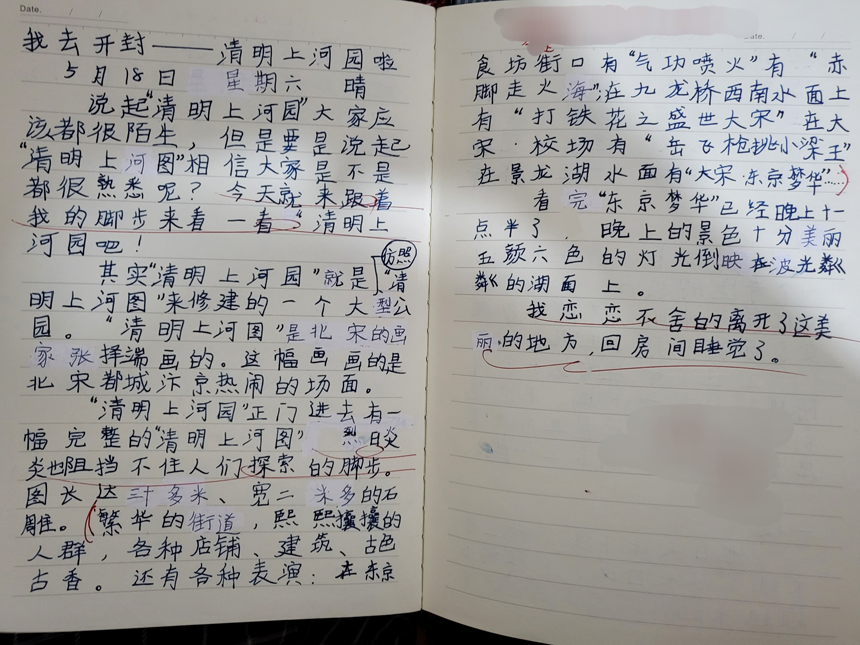 Date.
我去开封——清明上河园啦
5月18日 星期六 晴
说起“清明上河园”大家应
该都很陌生，但是要是说起
“清明上河图”相信大家是不是
都很熟悉呢？今天就来跟着
我的脚步来看一看“清明上
河园吧！
仿照
其实“清明上河园”就是“清
明上河图”来修建的一个大型公
园。“清明上河图”是北宋的画
家张择湍画的。这幅画画的是
北宋都城汴京热闹的场面。
“清明上河园”正门进去有一
幅完整的“清明上河图” 烈日炎
炎也阻挡不住人们探索的脚步。
图长达三十多米、宽二米多的石
雕。繁华的街道，熙熙攘攘的
人群，各种店铺、建筑、古色
古香。还有各种表演：在东京
ate.
食坊街口有“气功喷火”有“赤
脚走火海”在九龙桥西南水面上
有“打铁花之盛世大宋”在大
宋·校场有“岳飞枪挑小梁王”
在景龙湖水面有“大宋·东京梦华”……
看完“东京梦华”已经晚上十一
点半了，晚上的景色十分美丽
五颜六色的灯光倒映在波光粼
粼的湖面上。
我恋恋不舍的离开了这美
丽的地方，回房间睡觉了。